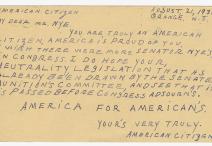 AMERICAN CITIZEN
AUGUST 21, 193
ORANGE, N.J.
MY DEAR MR. NYE
YOU ARE TRULY AN AMERICAN
CITIZEN, AMERICA IS PROUD OF YOU.
I WISH THERE WERE MORE SENATOR NYE'S
IN CONGRESS. I DO HOPE YOUR
NEUTRALITY LEGISLATION THAT HAS
ALREADY BEEN DRAWN BY THE SENATE
MUNITION'S COMMITTEE, AND SEE THAT IT
IS PASSED BEFORE CONGRESS ADJOURNS.
AMERICA FOR AMERICAN'S.
YOUR'S VERY TRULY.
AMERICAN CITIZEN